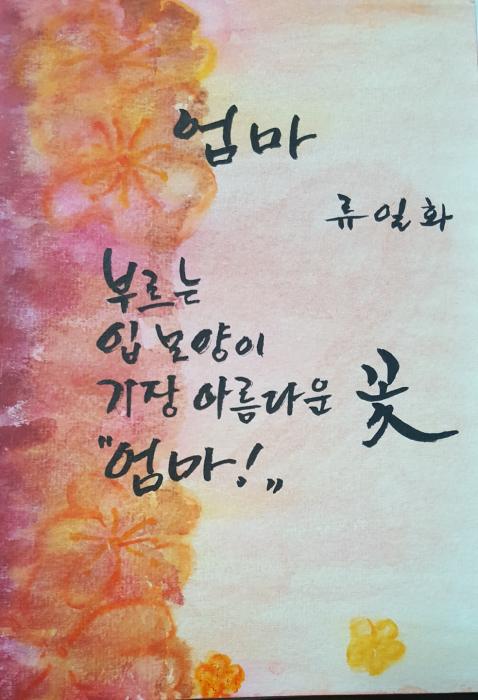 엄마
류일화
부르는
입 모양이
가장 아름다운 꽃
"엄마!"